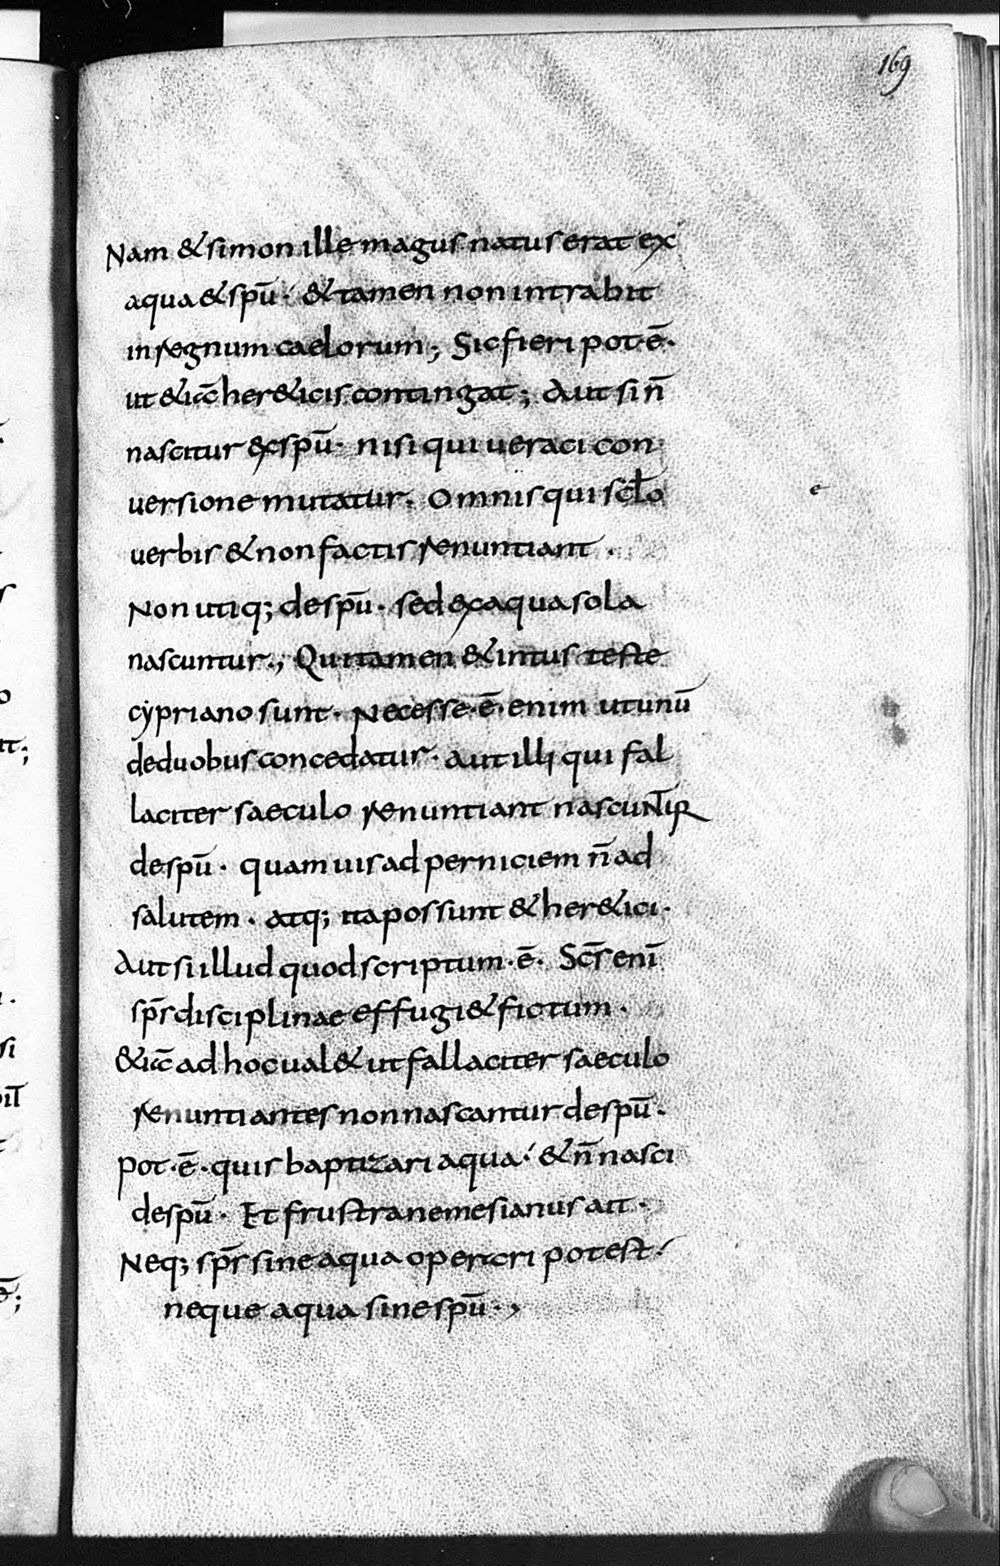 169
Nam & simon ille magus natus erat ex
aqua & spū· & tamen non intrabit
in regnum caelorum; Sic fieri pot·ē·
ut & ic̄ her&icis contingat; Aut si n̄
nascitur ex spū· nisi qui ueraci con
uersione mutatur. Omnis qui sc̄lo
uerbis & non factis renuntiant .
Non utiq; de spū· sed ex aqua sola
nascuntur., Qui tamen & intus teste
cypriano sunt· Necesse·ē·enim ut unū
de duobus concedatur· aut illi qui fal
laciter saeculo renuntiant nascuntur
de spū· quamuis ad perniciem n̄ ad
salutem· atq; ita possunt & her&ici·
Aut si illud quod scriptum·ē· Sc̄s enī
sp̄s disciplinae effugi& fictum·
& ic̄ ad hoc ual& ut fallaciter saeculo
renuntiantes non nascantur de spū·
pot·ē·quis baptizari aqua· & n̄ nasci
de spū· Et frustra nemesianus ait·
Neq; sp̄s sine aqua opereri potest·
neque aqua sine spū·,